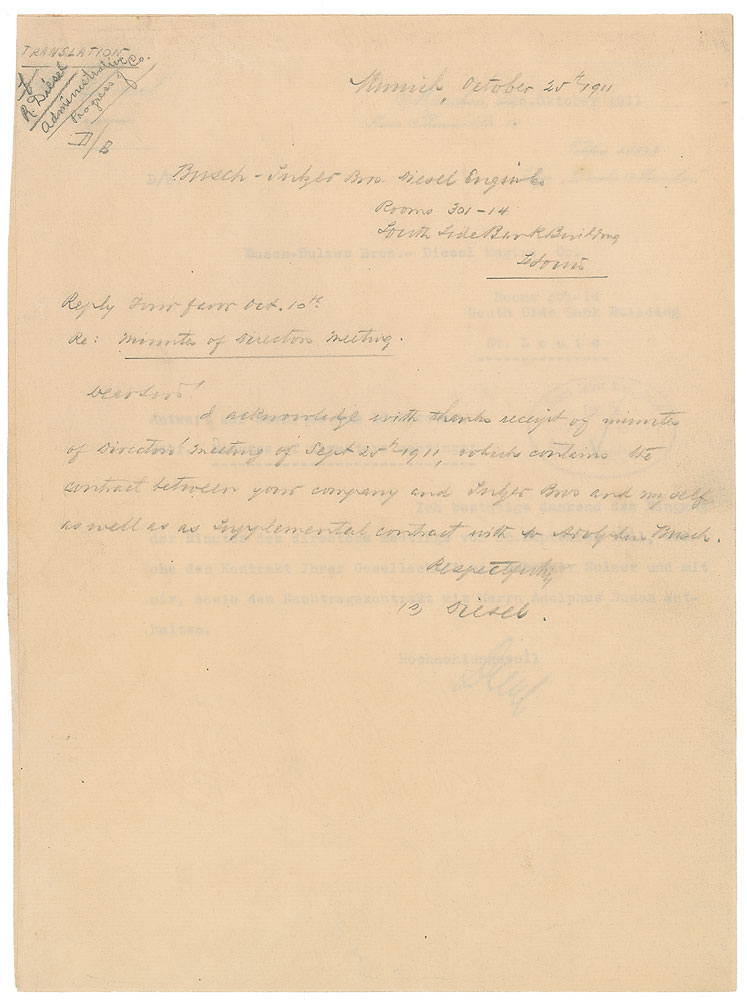 TRANSLATION
R. Diesel
Administrative Co.
Progress
D/B
Munich, October 25th 1911
Busch-Sulzer Bros. Diesel Engine Co
Rooms 301-14
South Side Bank Building
St Louis
Reply Your favor Oct. 10th
Re: Minutes of Directors Meeting.
Dear Sirs!
I acknowledge with thanks receipt of minutes
of Directors' Meeting of Sept 25th 1911, which contains the
contract between your company and Sulzer Bros and myself
as well as as Supplemental contract with Adolphus Busch.
Respectfully
Diesel.
Busch-Sulzer Bros.- Diesel
Rooms 301-14
South Side Bank Building
St. Louis
Ich bestätige dankend den
der Minutes des Directors
che den Kontrakt Ihrer Gesellsc Sulzer und mit
mir, sowie den Nachtragskontrakt mit Herrn Adolphus Busch ent-
halten.
Hochachtungsvoll